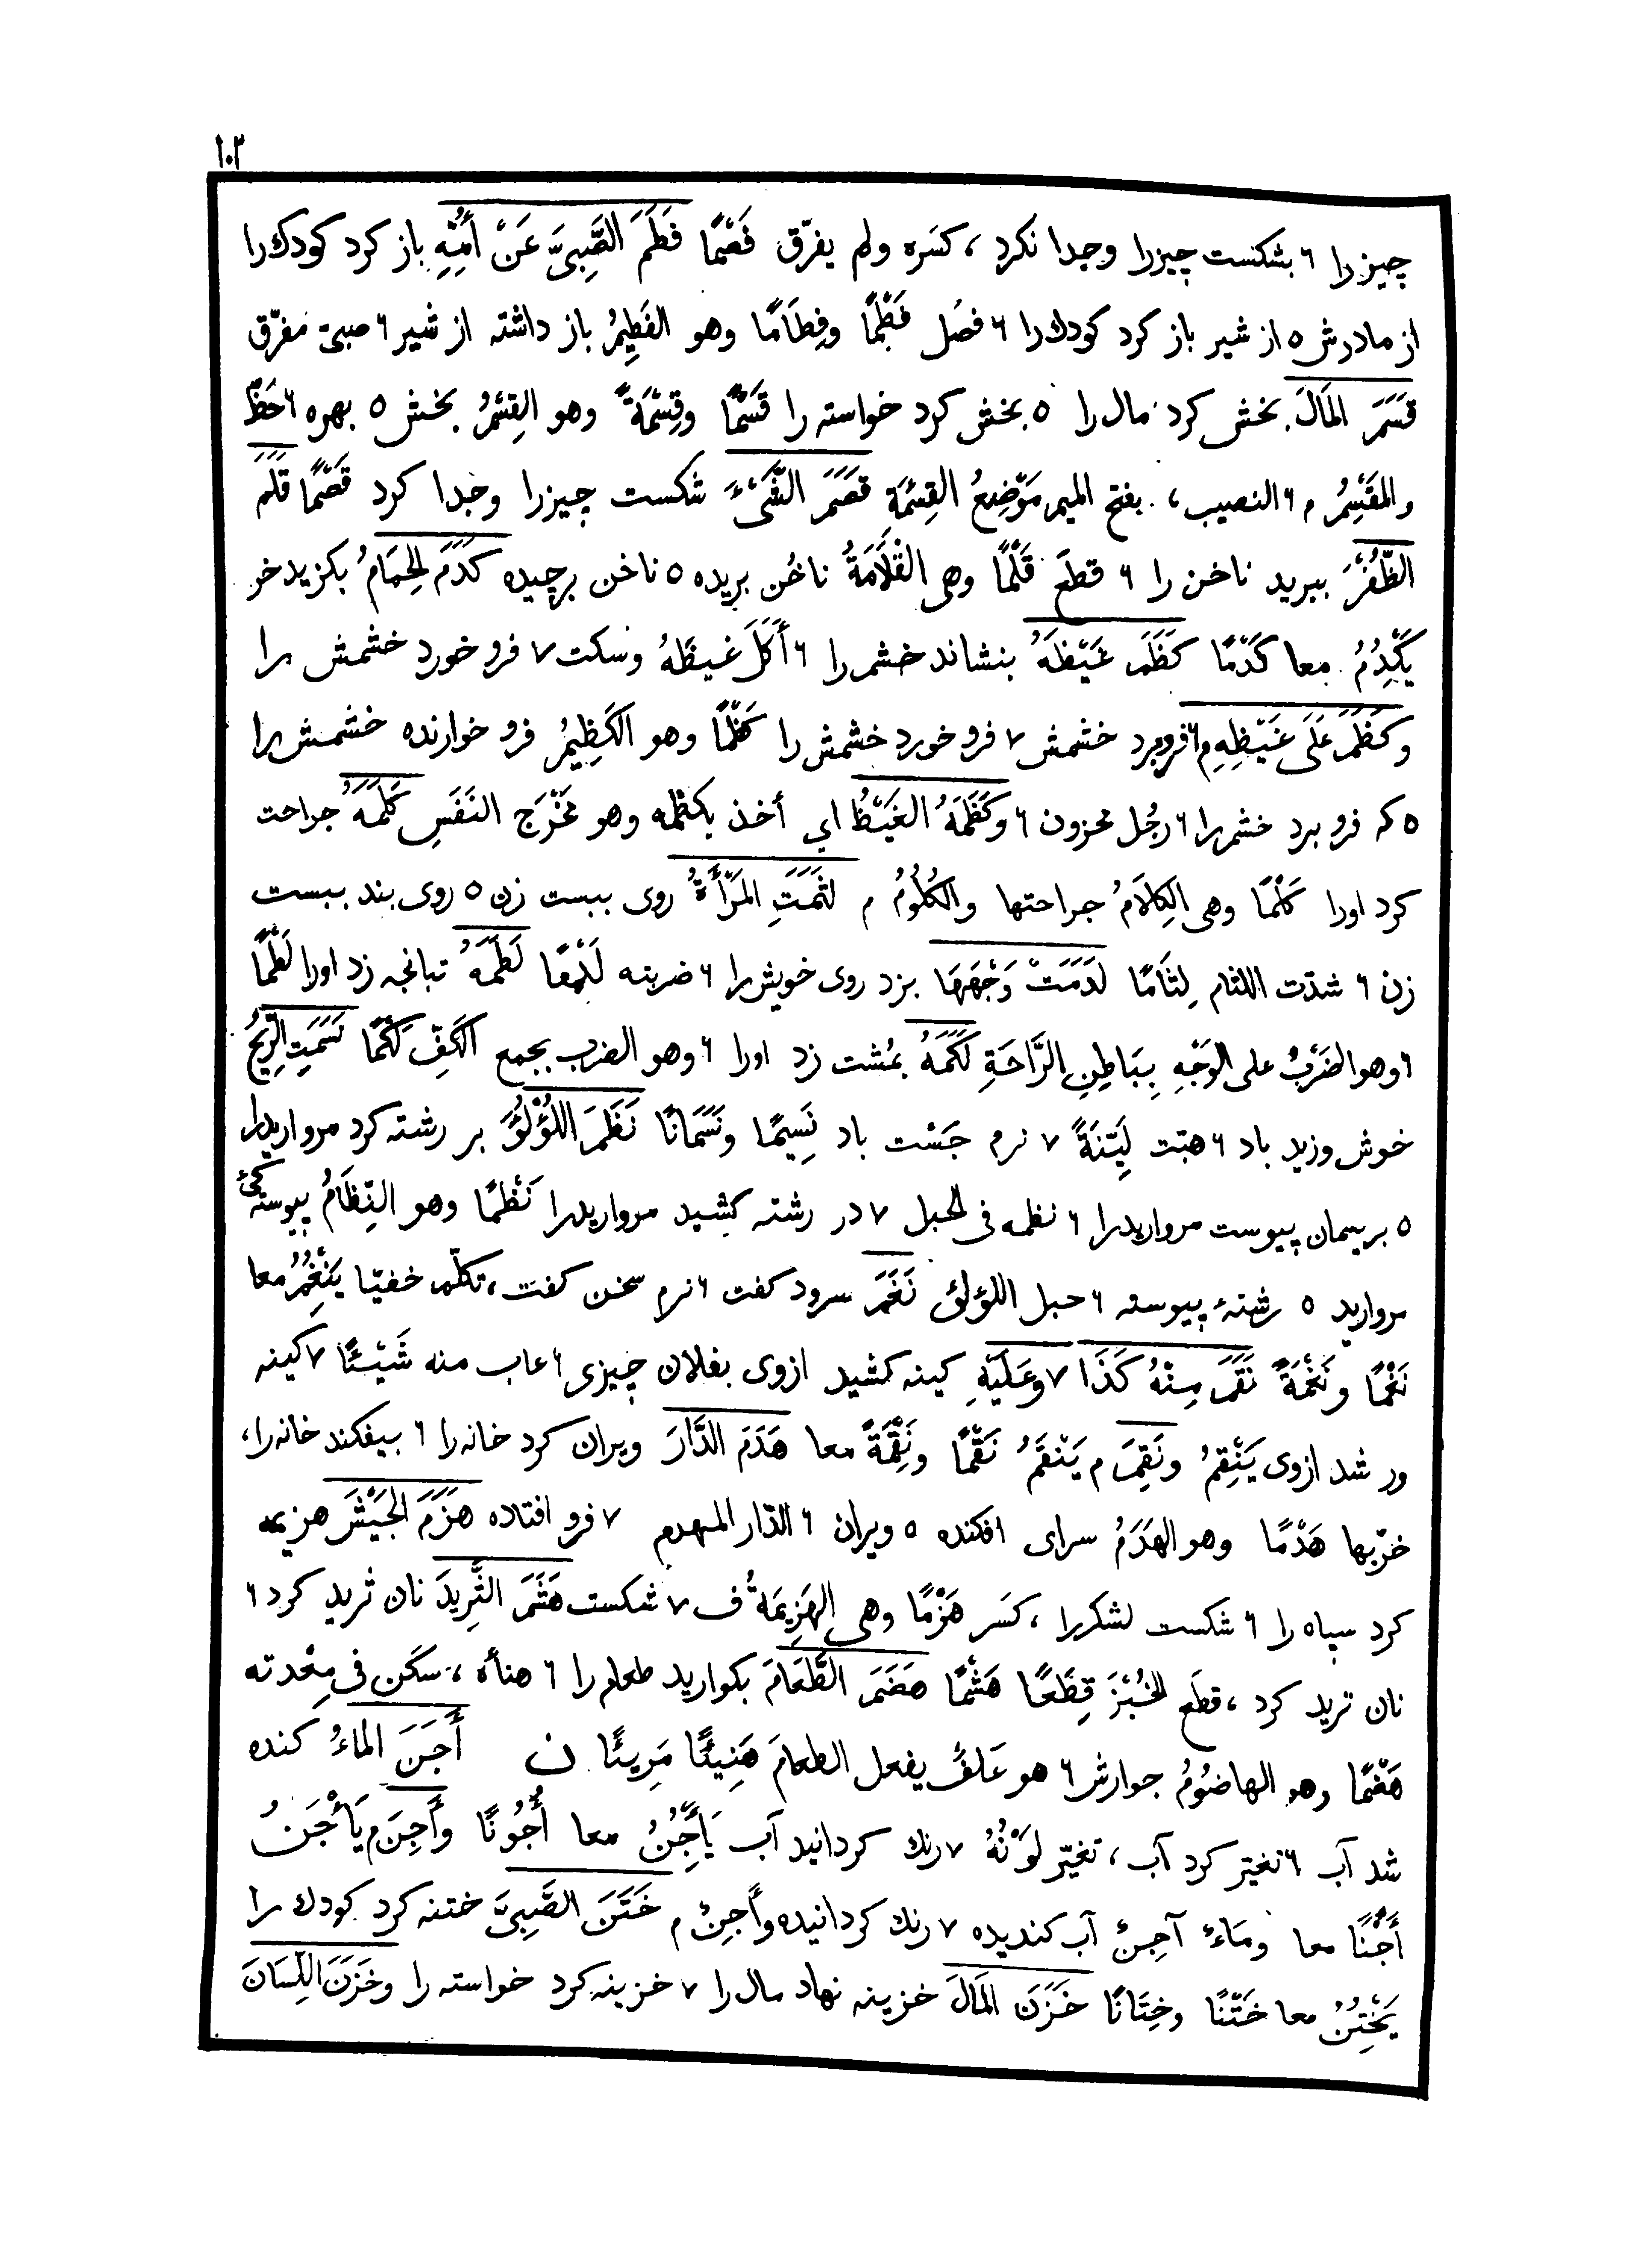 ١٠٢
چیز را ٦ بشکست چیزرا وجدا نکرد ، کسَره ولم یفرّق فَصْمًا فَطَمَ الصَّبِیَّ عَنْ أُمِّهِ باز کرد کودك را
از مادرش ٥ از شیر باز کرد کودك را ٦ فصَل فَطْمًا وفِطَامًا وهو الفَطِیمُ باز داشته از شیر ٦ صبیّ مفرّق
قَسَمَ المَالَ بخش کرد مال را ٥ بخش کرد خواسته را قَسْمًا وقِسْمَةً وهو القِسْمُ بخش ٥ بهره ٦ حَظّ
والمَقْسِمُ م ٦ النصیب ، بفتح المیم مَوْضِعُ القِسْمَةِ قَصَمَ الشَّیْءَ شکست چیزرا وجدا کرد قَصْمًا قَلَمَ
الظُّفْرَ ببرید ناخن را ٦ قطعَ قَلْمًا وهی الْقُلَامَةُ ناخُن بریده ٥ ناخن برچیده کَدَمَ الحِمَارُ بکزید خر
یَکْدِمُ معا کَدْمًا کَظَمَ غَیْظَهُ بنشاند خشم را ٦ أَکَلَ غیظَهُ وسکت ٧ فرو خورد خشمش را
وکَظَمَ عَلَی غَیْظِهِ م ٦ فروبرد خشمش ٧ فرو خورد خشمش را کَظْمًا وهو الکَظِیمُ فرو خوارنده خشمش را
٥ که فرو برد خشم را ٦ رجُل محزون ٦ وکَظَمَهُ الغَیْظُ ای أخذ بکظمه وهو مَخْرَج النَفَسِ کَلَمَهُ جراحت
کرد اورا کَلْمًا وهی الکِلَامُ جراحتها والکُلُومُ م لَثَمَتِ المَرْأَةُ روی ببست زن ٥ روی بند ببست
زن ٦ شدّت اللثام لِثَامًا لَدَمَتْ وَجْهَهَا بزد روی خویش را ٦ ضربته لَدْمًا لَطَمَهُ تبانجه زد اورا لَطْمًا
٦ وهو الضَرْبُ علی الوَجْهِ بِبَاطِنِ الرَّاحَةِ لَکَمَهُ بمُشت زد اورا ٦ وهو الضرب بجمع الکَفِّ لَکْمًا نَسَمَتِ الرِّیحُ
خوش وزید باد ٦ هبّت لَیِّنَةً ٧ نرم جَسْت باد نَسِیمًا ونَسَمَانًا نَظَمَ اللُؤْلُؤَ بر رشته کرد مروارید را
٥ بریسمان پیوست مروارید را ٦ نظمه فی الحبل ٧ در رشته کشید مروارید را نَظْمًا وهو النِّظَامُ پیوستکیٔ
مروارید ٥ رشتهٔ پیوسته ٦ حبل اللؤلؤ نَغَمَ سرود کفت ٦ نرم سخن کفت ، تکلّم خفیّا یَنْغِمُ معا
نَغْمًا ونَغْمَةً نَقَمَ مِنْهُ کَذَا ٧ وعَلَیْهِ کینه کشید ازوی بفلان چیزی ٦ عاب منه شَیْئًا ٧ کینه
ور شد ازوی یَنْقِمُ ونَقِمَ م یَنْقَمُ نَقْمًا ونِقْمَةً معا هَدَمَ الدَّارَ ویران کرد خانه را ٦ بیفکند خانه را ،
خرّبها هَدْمًا وهو الهَدَمُ سرای افکنده ٥ ویران ٦ الدّار المهدم ٧ فرو افتاده هَزَمَ الجَیْشَ هزیمه
کرد سپاه را ٦ شکست لشکررا ، کسَر هَزْمًا وهی الهَزِیمَةُ ف ٧ شکست هَثَمَ الثَّرِیدَ نان ثرید کرد ٦
نان ترید کرد ، قطَع الخُبْزَ قِطَعًا هَثْمًا هَضَمَ الطَّعَامَ بکوارید طعام را ٦ هنأه ، سکَن فی مِعْدته
هَضْمًا وهو الهاضُومُ جوارش ٦ هو عَلَفٌ یفعل الطعامَ هَنِیئًا مَرِیئًا ن أَجَنَ المَاءُ کنده
شد آب ٦ تغیّر کرد آب ، تغیّر لَوْنُهُ ٧ رنك کردانید آب یَأْجِنُ معا أُجُونًا وأَجِنَ م یَأْجَنُ
أَجْنًا معا ومَاءٌ آجِنٌ آب کندیده ٧ رنك کردانیده وأَجِنٌ م خَتَنَ الصَّبِیَّ ختنه کرد کودك را
یَخْتِنُ معا خَتْنًا وخِتَانًا خَزَنَ المَالَ خزینه نهاد مال را ٧ خزینه کرد خواسته را وخَزَنَ اللِّسَانَ